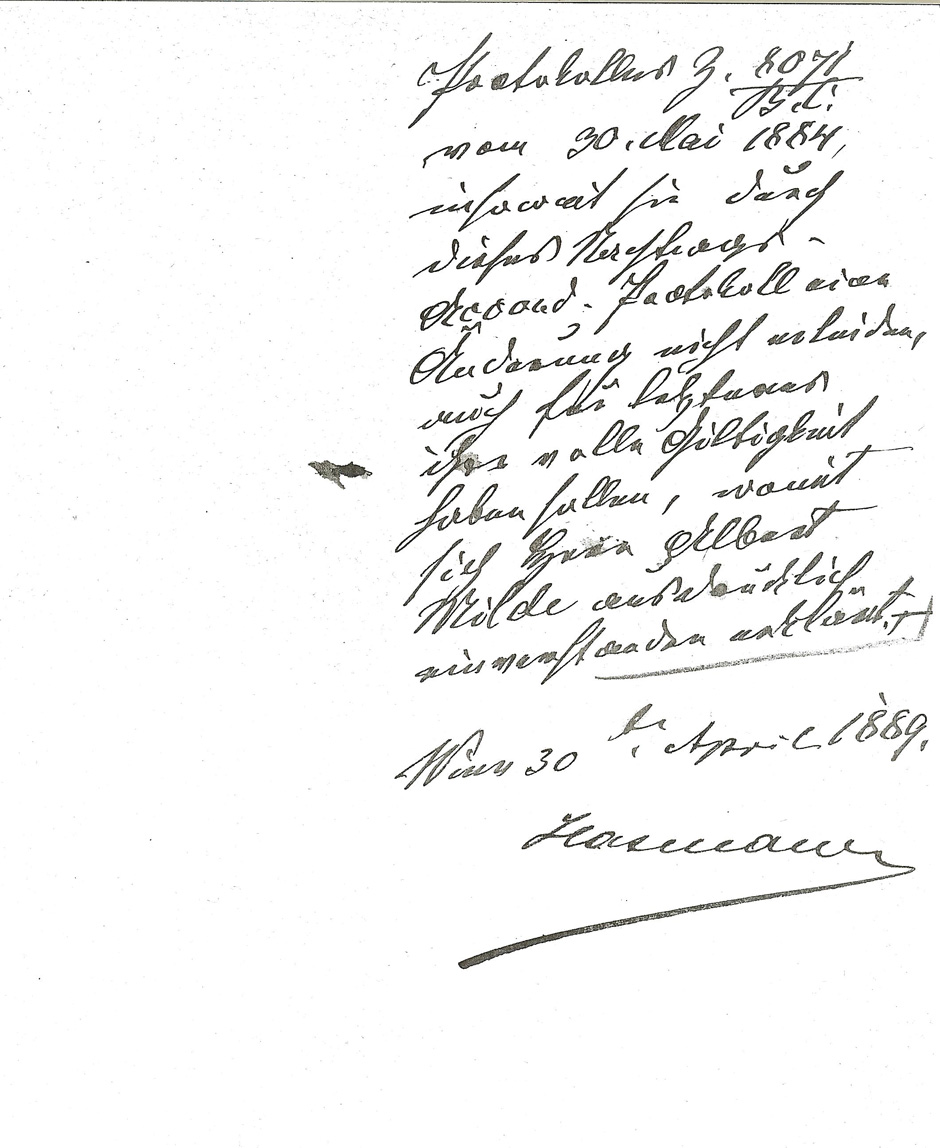 Protokolles Z. 8071
B.L.
vom 30. Mai 1884,
insoweit sie durch
dieses Nachtrags-
Accord-Protokoll eine
Änderung nicht erleiden,
auch für letzteres
ihre volle Giltigkeit
haben sollen, womit
sich Herr Albert
Milde ausdrücklich
einverstanden erklärt.
Wien 30ten April 1889.